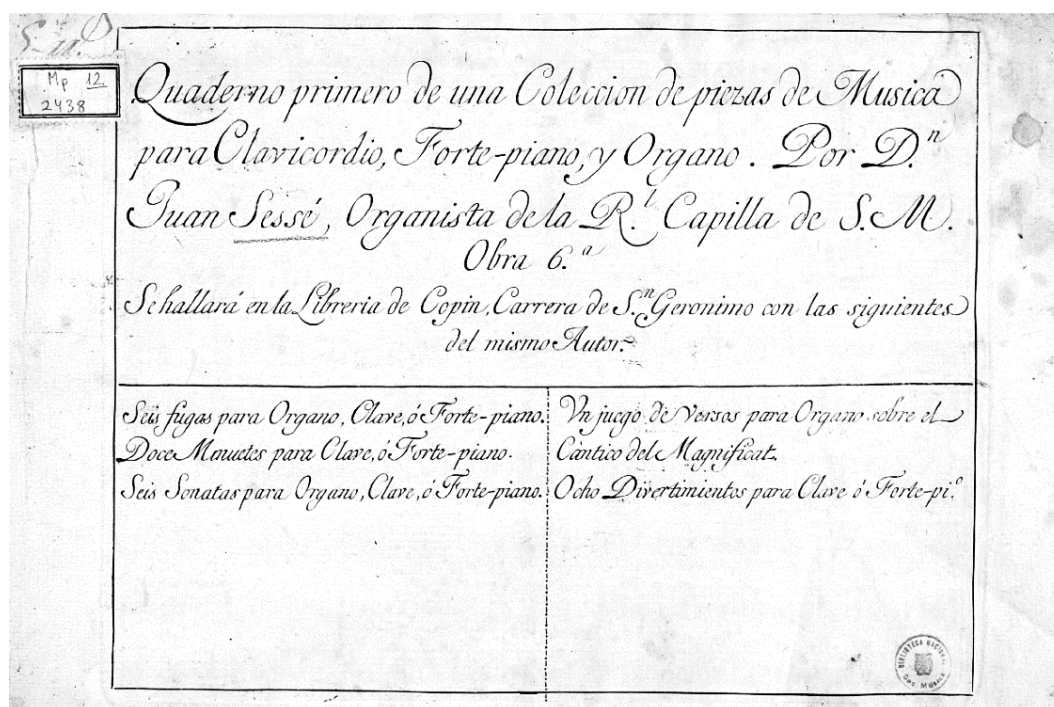 Mp 12
2438
Quaderno primero de una Coleccion de piezas de Musica
para Clavicordio, Forte-piano, y Organo. Por D.ⁿ
Juan Sessé, Organista de la R.ˡ Capilla de S. M.
Obra 6.ᵃ
Se hallará en la Libreria de Copin, Carrera de S.ⁿ Geronimo con las siguientes
del mismo Autor.
Seis fugas para Organo, Clave, ó Forte-piano.
Doce Minuetes para Clave, ó Forte-piano.
Seis Sonatas para Organo, Clave, ó Forte-piano.
Un juego de Versos para Organo sobre el
Cantico del Magnificat.
Ocho Divertimientos para Clave ó Forte-pi.º
BIBLIOTECA NACIONAL